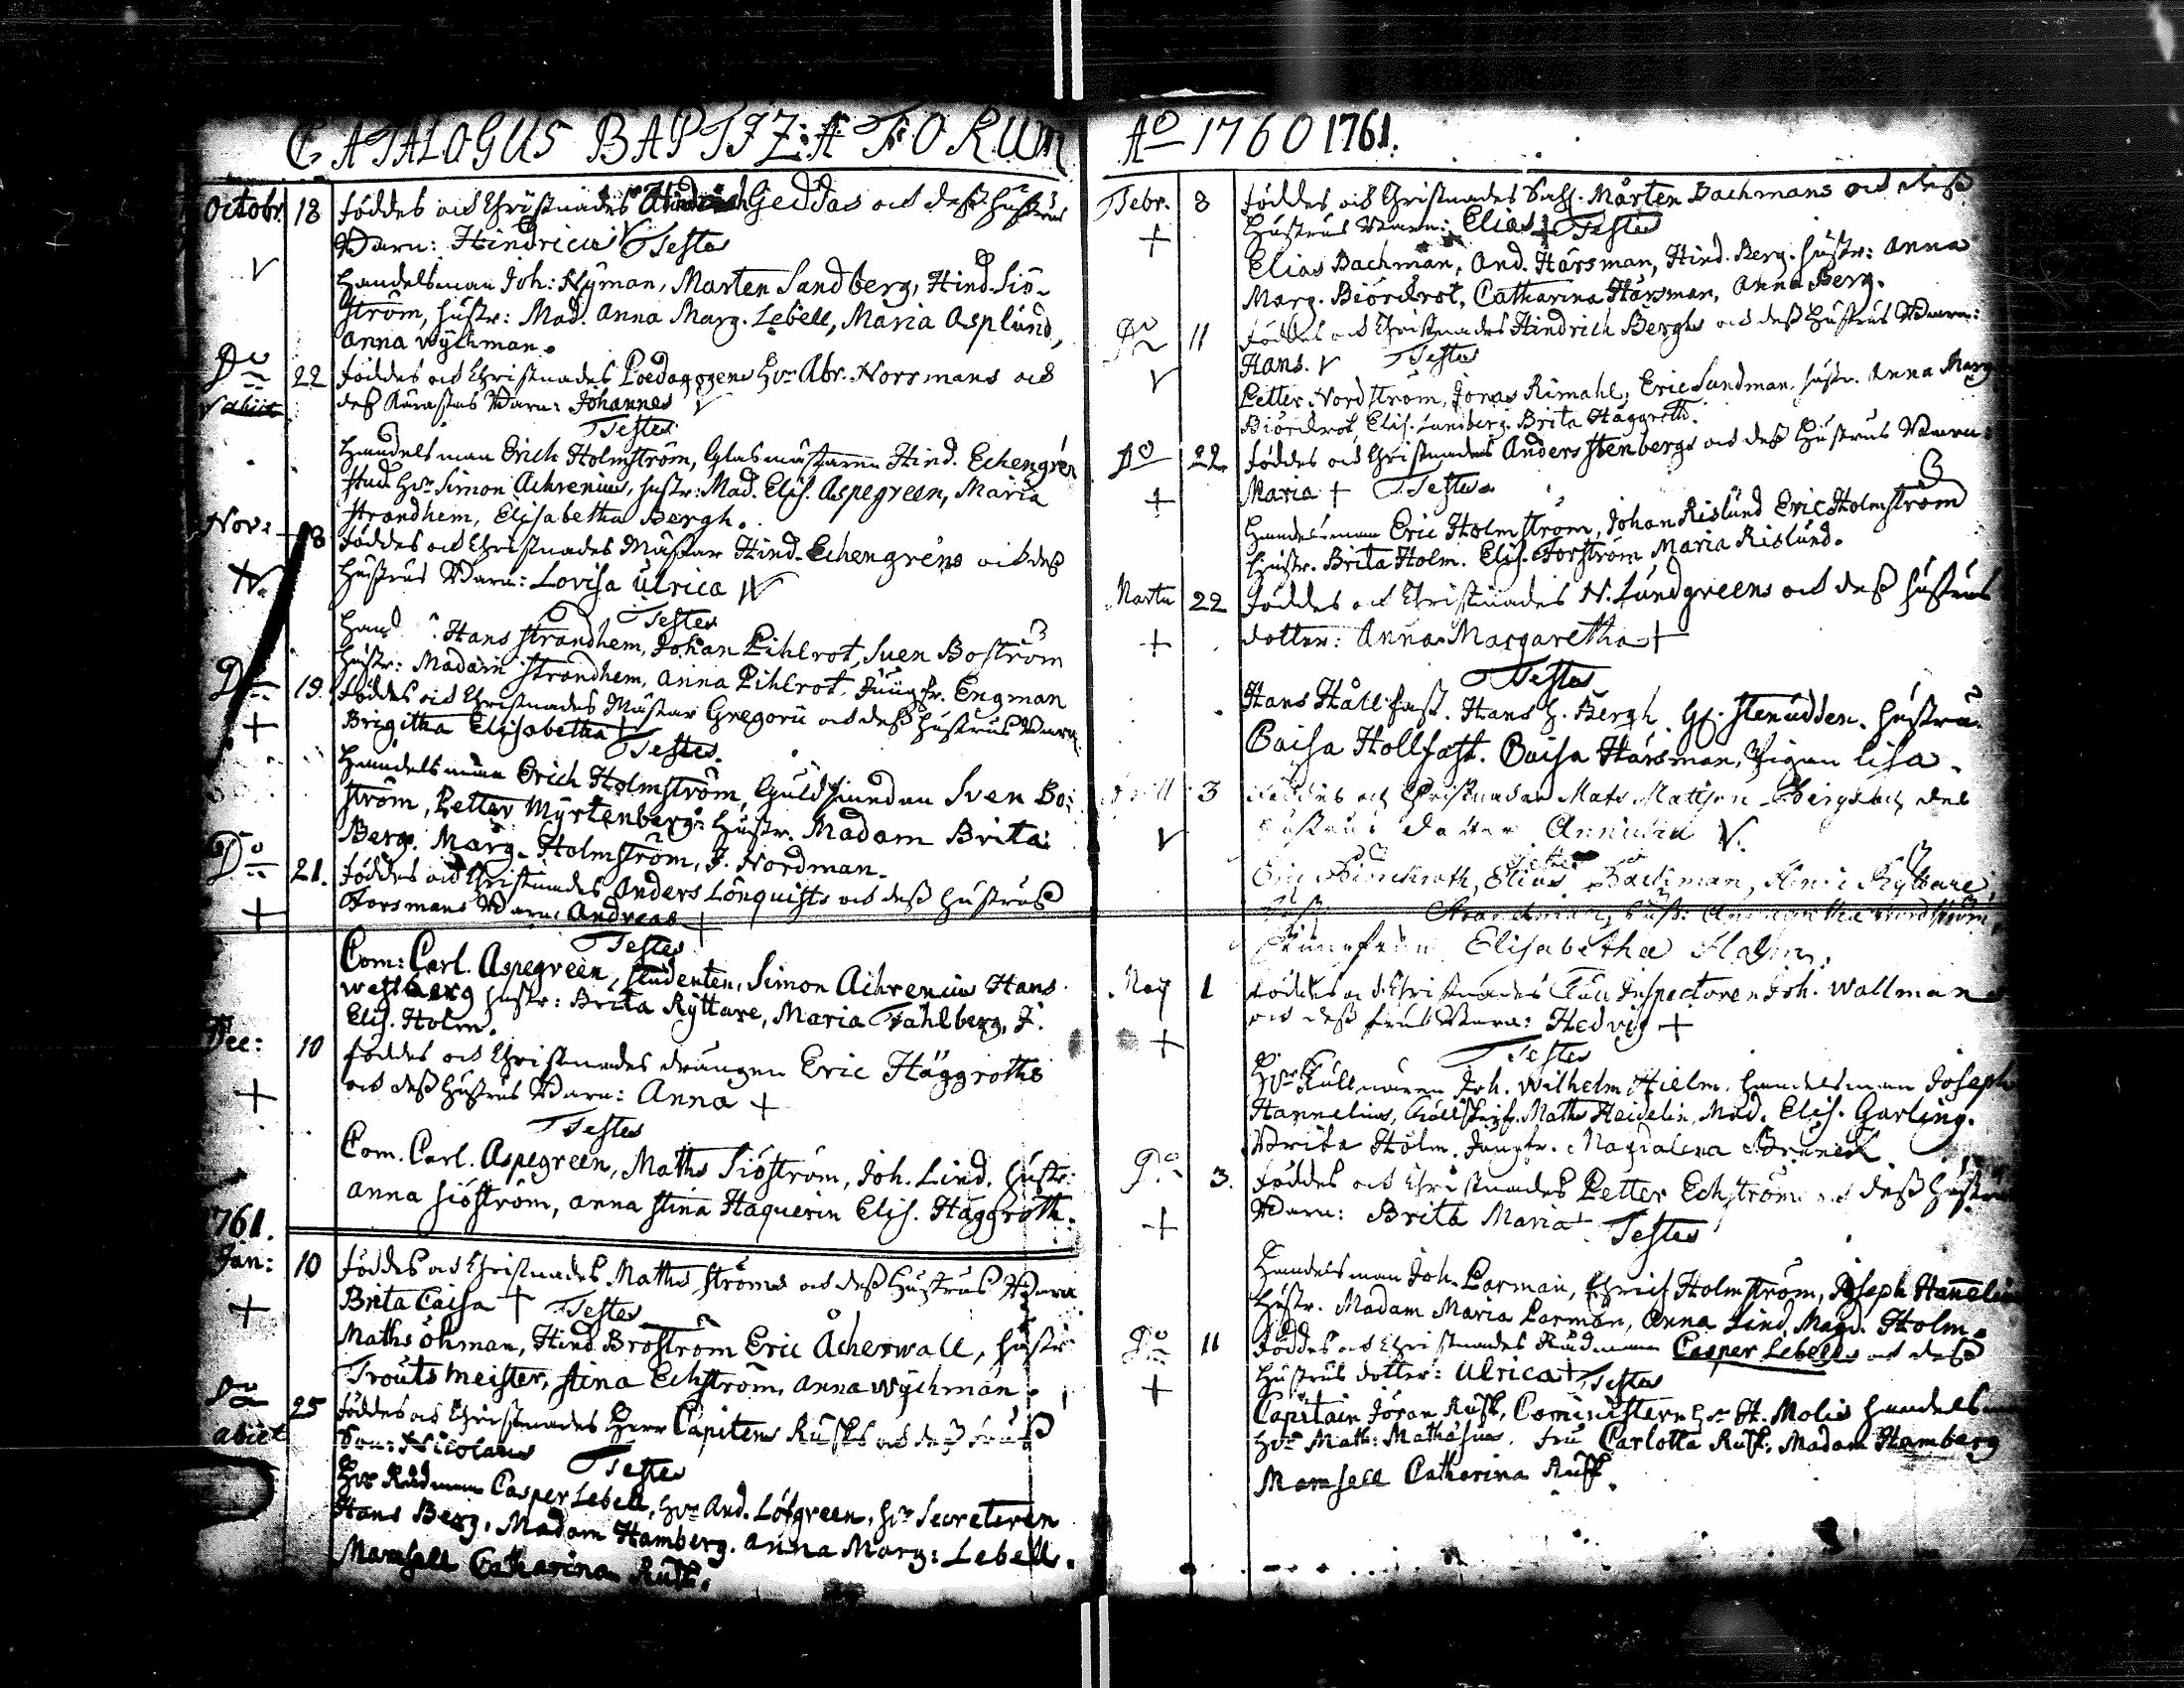 CATALOGUS BAPTIZATORUM
Octobr. 18 föddes och Christnades Hindrich Geddas och dess hustrus
Barn: Hindricus V Testes
V Handelsman Joh: Nyman, Marten Sandberg, Hind. Siö-
ström, hustr: Mad. Anna Marg. Lebell, Maria Asplund,
Anna Wychman.
Do 22 föddes och Christnades Poedagogens Hr Abr. Norrmans och
V abiit dess Kärastas Barn: Johannes V
Testes
Handelsman Erich Holmström, Glasmästaren Hind. Echengrén
Stud. Hr Simon Achrenius, hustr: Mad. Elis. Aspegreen, Maria
Strandhem, Elisabetha Bergh.
Nov: 8 föddes och Christnades Mästar Hind. Echengréns och dess
hustrus Barn: Lovisa Ulrica V
Testes
Hans Strandhem, Johan Pihlrot, Sven Boström
hustr: Madam Strandhem, Anna Pihlrot, Jungfr. Engman
Do 19. föddes och Christnades Mästar Gregorii och dess hustrus Barn
+ Brigitha Elisabetha +
Testes.
Handelsman Erich Holmström, Guldsmeden Sven Bo-
ström, Petter Myrtenberg. hustr. Madam Brita
Berg. Marg. Holmström, J. Nordman.
Do 21. föddes och Christnades Anders Lönquists och dess hustrus
+ Forsmans Barn: Andreas +
Testes
Com: Carl. Aspegreen, Studenten, Simon Achrenius Hans
Wessberg hustr: Brita Ryttare, Maria Fahlberg, J.
Elis. Holm.
Dec: 10 föddes och Christnades drängen Eric Häggroths
+ och dess hustrus Barn: Anna +
Testes
Com. Carl. Aspegreen, Maths Siöström, Joh. Lind, hustr:
Anna Siöström, Anna Stina Haquerin Elis. Häggroth.
1761.
Jan: 10 föddes och Christnades Maths Ströms och dess hustrus Barn
+ Brita Caisa + Testes
Maths Öhman, Hind. Broström Eric Åcherwall, hustr
Troutsmeister, Stina Echström, Anna Wychman.
Do 25 föddes och Christnades Herr Capitens Rusks och dess frus
abiit Son: Nicolaus
Testes
Hr Rådman Casper Lebell, Hr And. Löfgreen, Hr Secreteren
Hans Berg, Madam Hamberg. Anna Marg: Lebell.
Mamsell Catharina Rusk.
Ao 1760 1761.
Febr. 8 föddes och Christnades Mårten Bachmans och dess
+ hustrus Barn: Elias + Testes
Elias Bachman, And. Hårsman, Hind. Berg. hustr: Anna
Marg. Biörckrot, Catharina Hårsman, Anna Berg.
Do 11 föddes och Christnades Hindrich Berghs och dess hustrus Barn:
V Hans. V Testes
Petter Nordström, Jonas Rimahl, Eric Sundman hustr. Anna Marg
Biörckrot, Elis. Lundberg. Brita Häggroth.
Do 22. föddes och Christnades Anders Stenbergs och dess hustrus Barn:
+ Maria + Testes
Handelsman Eric Holmström, Johan Rislund Eric Holmström
hustr. Brita Holm. Elis. Forström Maria Rislund.
Martii 22 föddes och Christnades N. Lundgreens och dess hustrus
+ dotter: Anna Margaretha +
Testes
Hans Hållfast. Hans H. Bergh. Stenudden. hustru
Caisa Hollfast. Caisa Hårsman, Pigan Lisa.
3 föddes och Christnades Mats Mattson och des
V hustrus dotter V.
Testes
Eric Biörckroth, Elias Backman, Ryttare,
Elisabetha Holm.
May 1 föddes och Christnades Tull Inspectoren Joh. Wallmans
+ och dess frus Barn: Hedvig +
Testes
Joh. Wilhelm Hielm. Handelsman Joseph
Hannelius, Maths Heidelin, Mad. Elis. Garling.
Brita Holm. Jungfr. Magdalena
Do 3. föddes och Christnades Petter Echströms och dess hustrus
+ Barn: Brita Maria + Testes
Handelsman Joh. Parman, Ehrich Holmström, Joseph Hannelius
hustr. Madam Maria Parman, Anna Lind, Magd. Holm.
Do 11 föddes och Christnades Rådman Casper Lebells och dess
+ hustrus dotter: Ulrica + Testes
Capitain Jöran Rusk, Cominister Hr H. Molis Handelsman
Hr Math: Mathesius, fru Carlotta Rusk, Madam Hamberg
Mamsell Catharina Rusk.